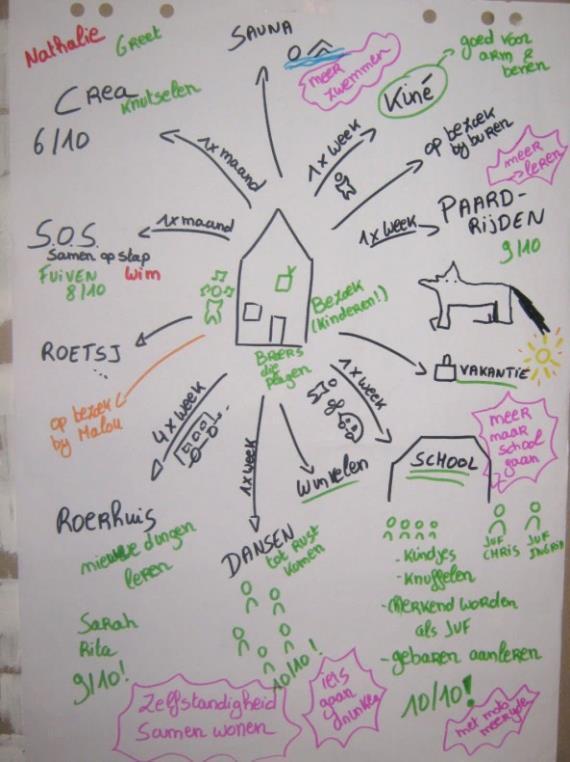 Nathalie Greet
SAUNA
meer
zwemmen
Kiné
goed voor
arm &
benen
Crea
Knutselen
6/10
1x maand
1x week
op bezoek
by buren
meer
leren
PAARD-
RijDEN
9/10
1x week
S.O.S.
Samen op stap
Fuiven Wim
8/10
1x maand
Bezoek
(kinderen!)
BROERS
die
plagen
ROETSJ
...
op bezoek
by Malou
VAKANTIE
4x week
1x week
1x week
Winkelen
SCHOOL
meer
naar
school
gaan
Roerhuis
nieuwe dingen
leren
Sarah
Rita
9/10!
DANSEN
tot rust
komen
10/10!
JUF
CHRIS
JUF
INGRID
- Kindjes
- Knuffelen
- erkend worden
als JUF
- gebaren aanleren
10/10!
Zelfstandigheid
Samen wonen
iets
gaan
drinken
met moto